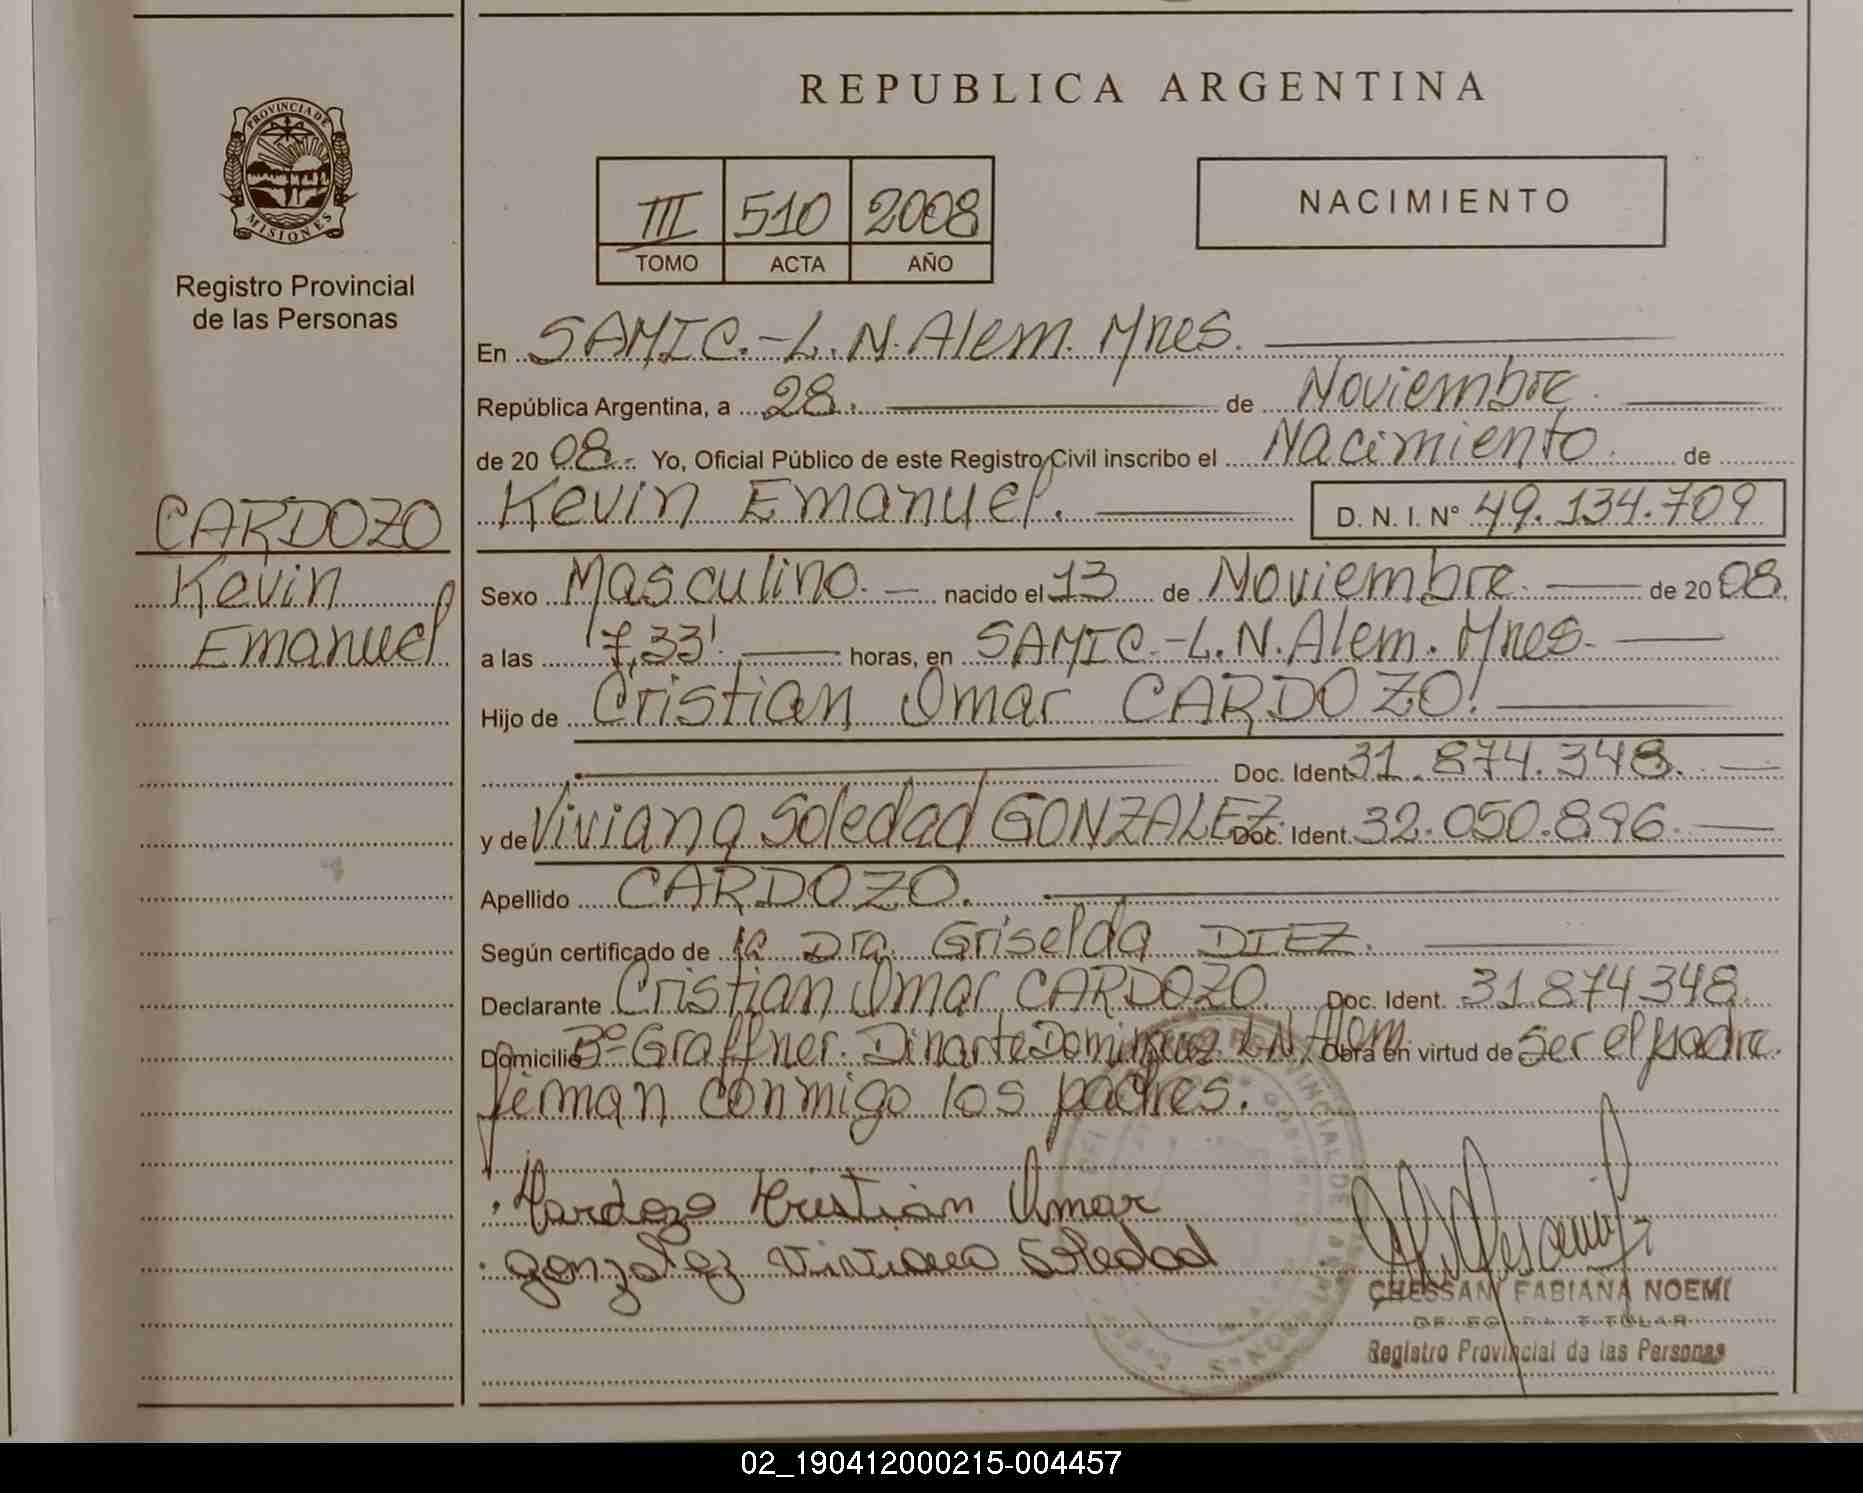 REPUBLICA ARGENTINA
PROVINCIA DE
MISIONES
Registro Provincial
de las Personas
III 510 2008
TOMO ACTA AÑO
NACIMIENTO
En SAMIC.-L.N.Alem. Mnes.
República Argentina, a 28. de Noviembre.
de 20 08.- Yo, Oficial Público de este Registro Civil inscribo el Nacimiento. de
Kevin Emanuel. D. N. I. N° 49.134.709
CARDOZO
Kevin
Emanuel
Sexo Masculino. nacido el 13 de Noviembre. de 20 08.
a las 7,33'. horas, en SAMIC.-L.N.Alem. Mnes.
Hijo de Cristian Omar CARDOZO.
Doc. Ident. 31.874.348.
y de Viviana Soledad GONZALEZ. Doc. Ident. 32.050.896.
Apellido CARDOZO.
Según certificado de la Dra. Griselda DIEZ.
Declarante Cristian Omar CARDOZO. Doc. Ident. 31.874.348.
Domicilio B° Graffner. Dinarte Dominguez L.N.Alem Obra en virtud de Ser el padre.
firman conmigo los padres.
Cardozo Cristian Omar
gonzalez Viviana Soledad
CHESSANI FABIANA NOEMI
TITULAR
Registro Provincial de las Personas
02_190412000215-004457